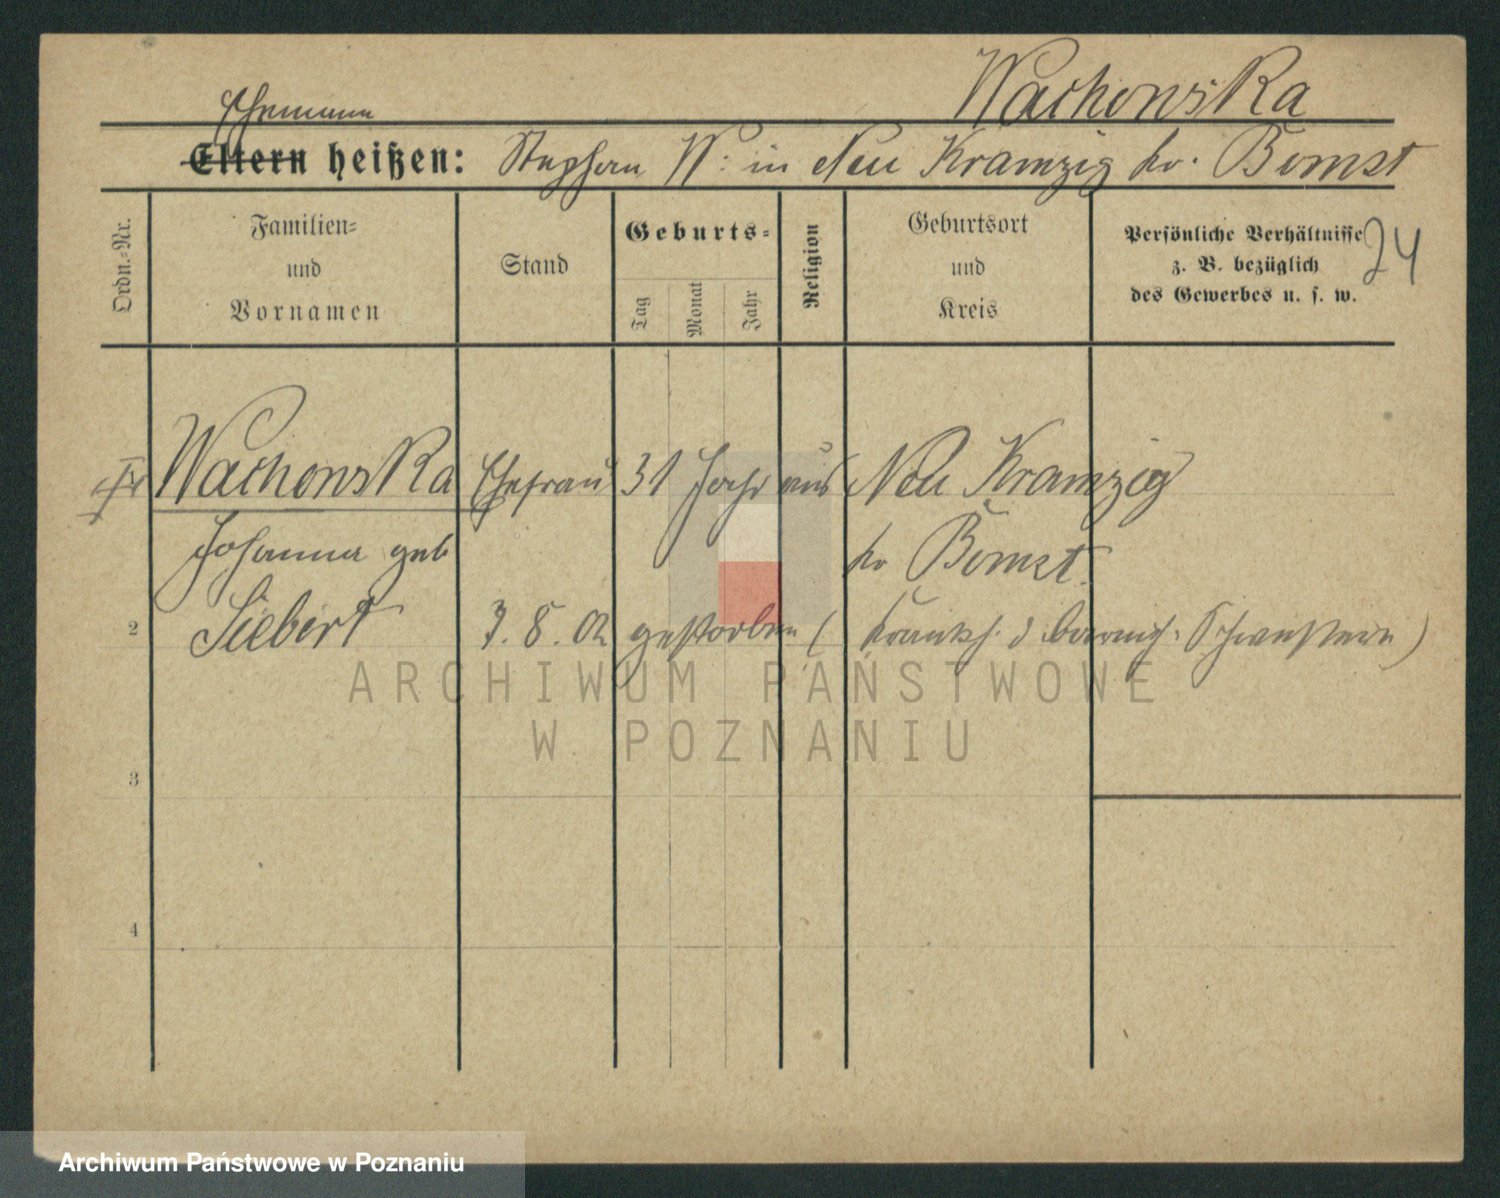 Wachowska
Ehemann
Eltern heißen: Stephan W: in Neu Kramzig Kr. Bomst
Ordn.-Nr.
Familien-
und
Vornamen
Stand
Geburts-
Tag
Monat
Jahr
Religion
Geburtsort
und
Kreis
Persönliche Verhältnisse
z. B. bezüglich
des Gewerbes u. s. w.
24
Wachowska Ehefrau 31 Jahr aus Neu Kramzig
Johanna geb Kr Bomst.
2 Siebert 7. 8. 02 gestorben (Krankh. d barmh. Schwestern)
ARCHIWUM PAŃSTWOWE
W POZNANIU
3
4
Archiwum Państwowe w Poznaniu